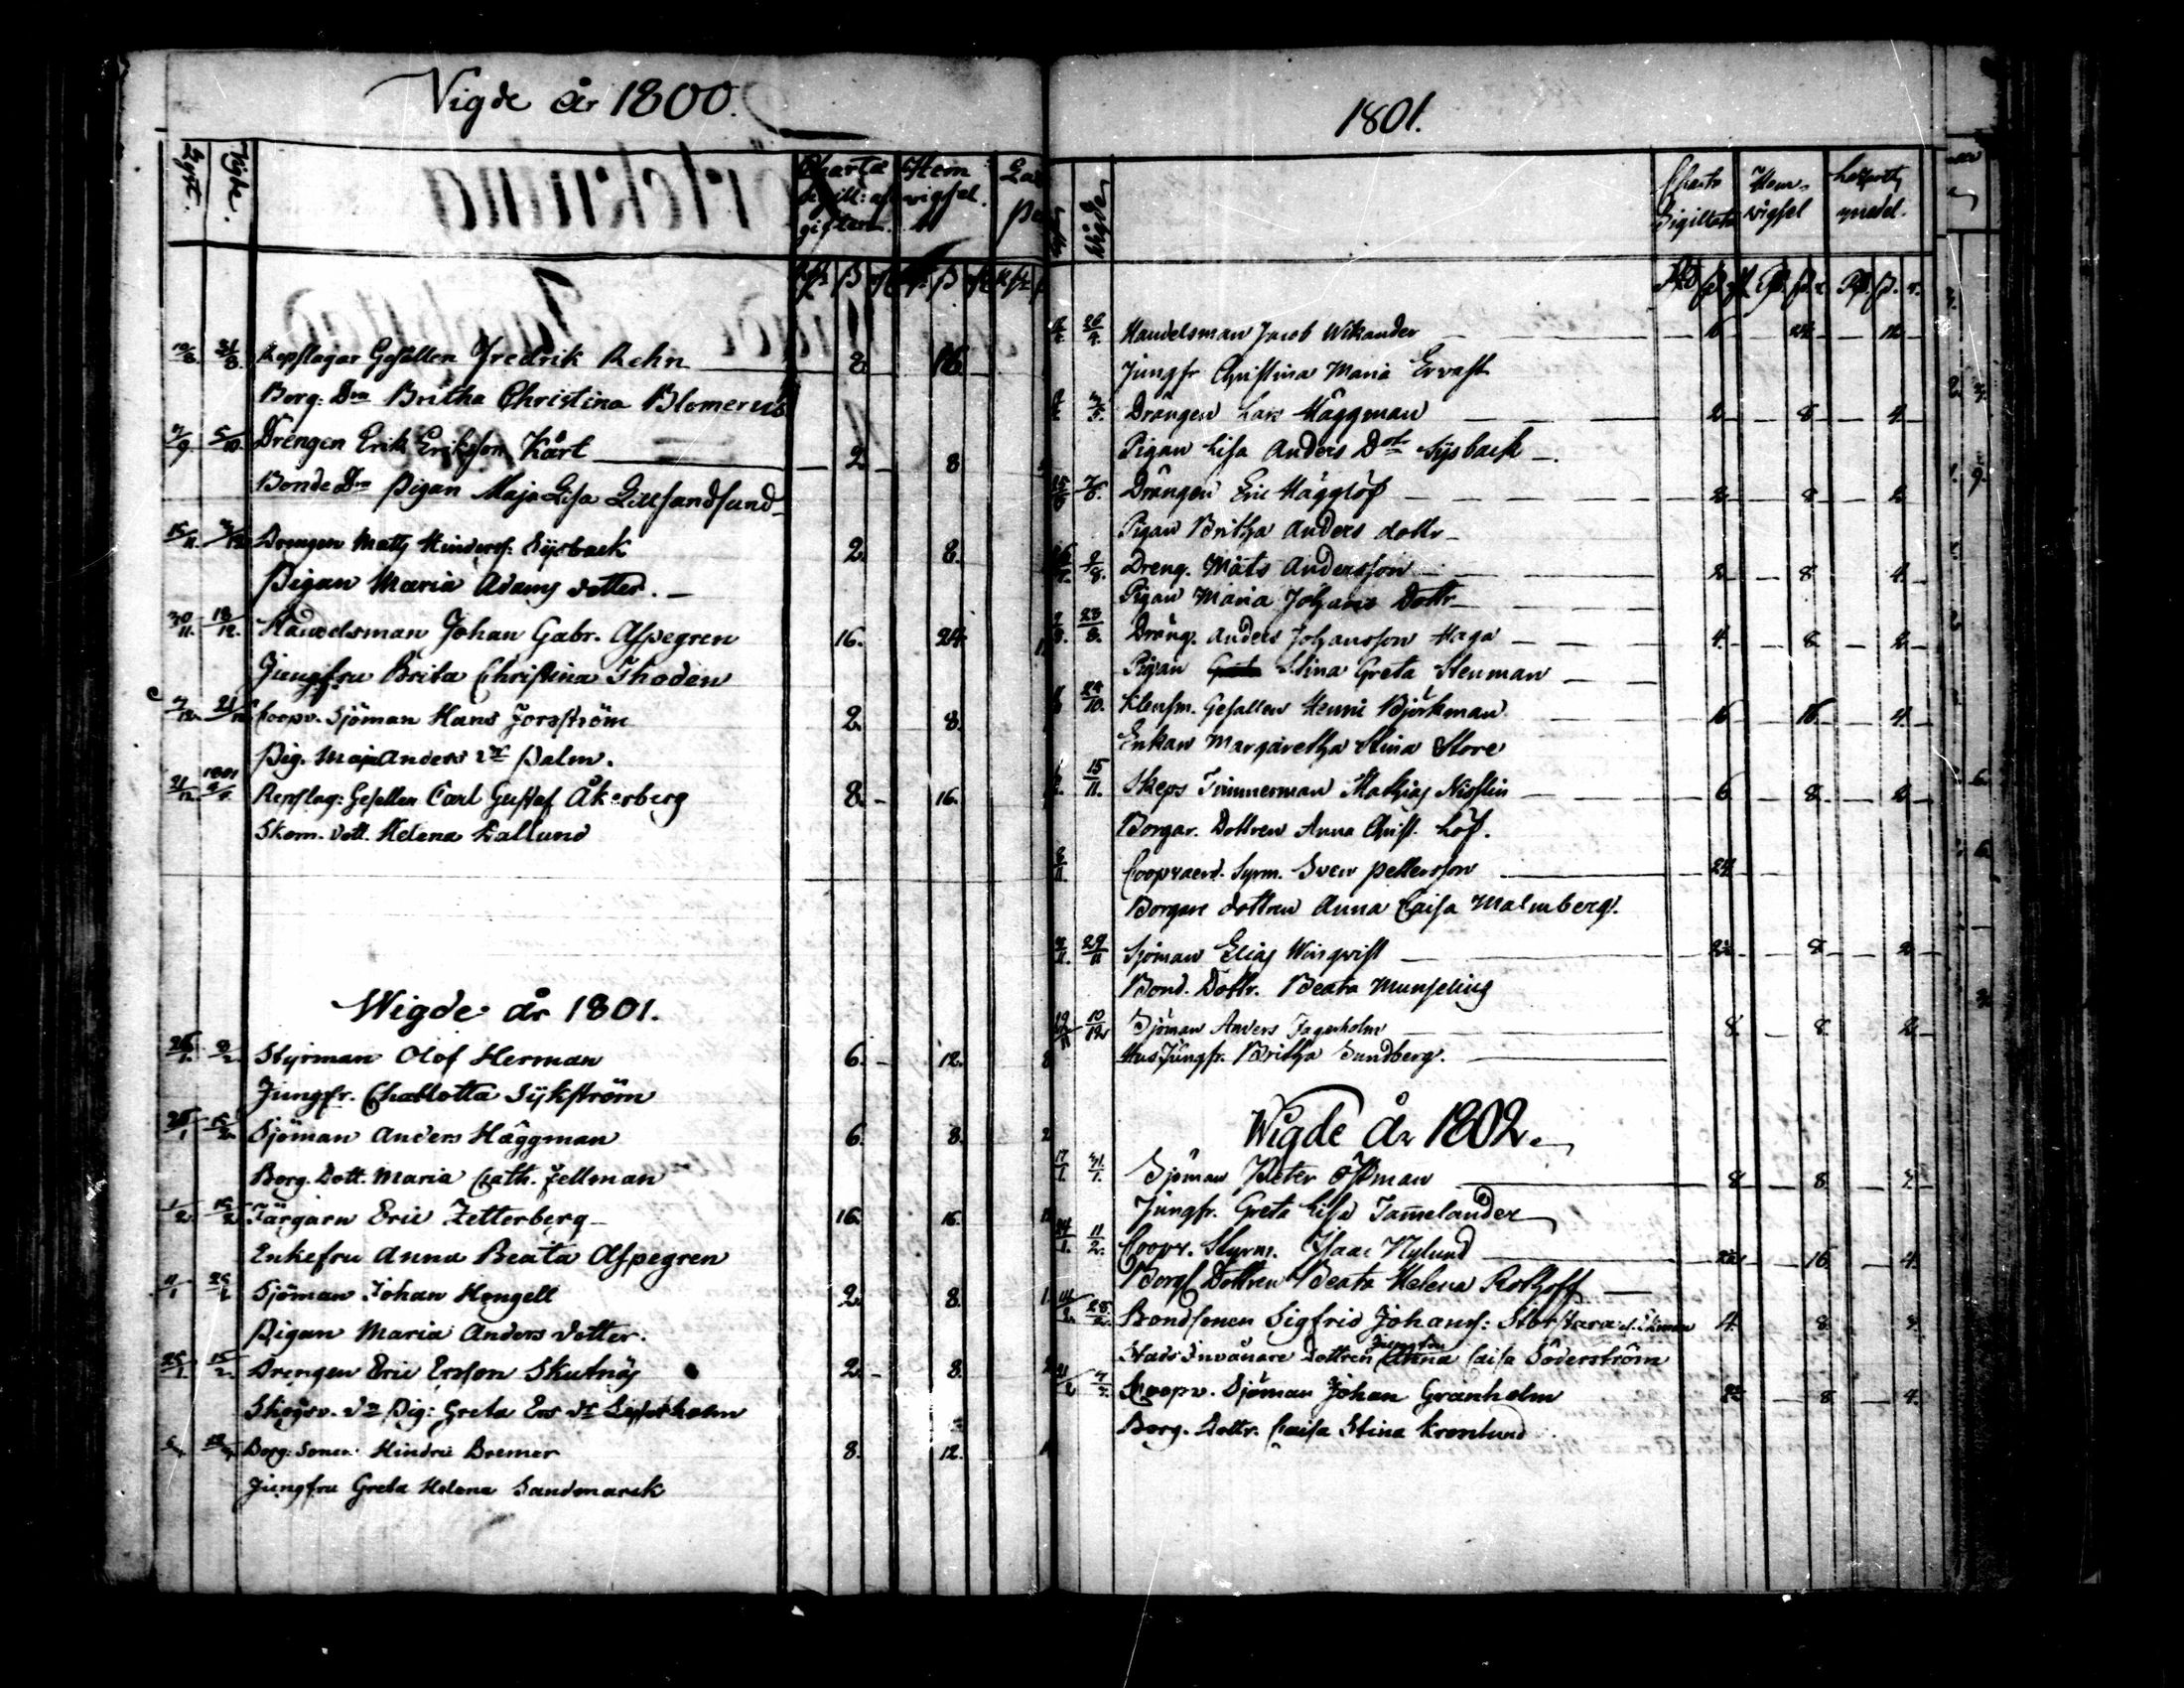 Vigde år 1800.
Lyst. Vigde. Charta sigill: af gifterna. Hem vigsel.
10/8. 31/8. Repslagar Gesällen Fredrik Rehn 8 16
Borg. Dra Britha Christina Blomerus
7/9 5/10. Drengen Erik Eriksson Kårt 2 8
Bonde Dra Pigan Maja Lisa Lillsandsund
15/11. Drengen Matts Hinderss: Sysback 2. 8.
Pigan Maria Adams dotter.
30/11. 18/12. Handelsman Johan Gabr. Aspegren 16. 24.
Jungfru Brita Christina Thodén
7/12. 21/12 Coopv. Sjöman Hans Forsström 2. 8.
Pig. Maja Anders dr Palm.
21/12. 1801 Repslag: Gesällen Carl Gustaf Åkerberg 8. 16.
Skom. dott. Helena Dallund
Wigde år 1801.
Styrman Olof Herman 6. 12. 8
Jungfr. Charlotta Sykström
Sjöman Anders Häggman 6. 8. 2
Borg. Dott. Maria Cath. Fellman
1/2. 15/2 Färgarn Eric Zetterberg 16. 16.
Enkefru Anna Beata Aspegren
Sjöman Johan Hongell 2. 8.
Pigan Maria Anders dotter.
25/1. 15/2. Drengen Eric Ersson Skutnäs 2. 8.
Skogsv. dr Pig: Greta Ers dr
Borg: Sonen Hindric Bremer 8. 12.
Jungfru Greta Helena Sandmarck
1801.
Vigde Charta Sigillata Hem vigsel Lasaretts medel.
26/4. Handelsman Jacob Wikander 16 24 12
Jungfr Christina Maria Ervast
Drängen Lars Häggman 2 8 4
Pigan Lisa Anders Dotr Sysback
Drängen Eric Hägglöf 2 8 2
Pigan Britha Anders dottr
Dreng. Mats Andersson 2 8. 4.
Pigan Maria Johans Dottr
2/8. 23/8. Dräng. Anders Johansson Haga 4. 8 2
Pigan Stina Greta Stenman
24/10. Klensm. Gesällen Henric Björkman 16 16 4.
Enkan Margaretha Stina Store
15/11. Skeps Timmerman Mathias Nisslin 6 8. 2
Borgar. Dottren Anna Christ. Löf.
8/11. Coopvaerd. Syrm. Sven Pettersson 24
Borgare dottren Anna Caisa Malmberg.
29/11 Sjöman Elias Winqvist 8 2
Bond. Dottr. Beata Munselius
10/12 Sjöman Anders Fagerholm 8. 8. 2
Hus Jungfr. Britha Sundberg.
Wigde År 1802.
17/1. 31/1. Sjöman Peter Östman 8 8.
Jungfr. Greta Lisa Tamelander
24/1. 11/2. Coopv. Styrm. Isaac Nylund 16. 4.
Borgl Dottren Beata Helena Rothoff
14/2. 28/2. Bondsonen Sigfrid Johans: Storstara 4. 8.
Stads Invånare dottren Jungfru Anna Caisa Söderström
21/2 Coopv. Sjöman Johan Granholm 8 4.
Borg. Dottr. Caisa Stina Kronlund